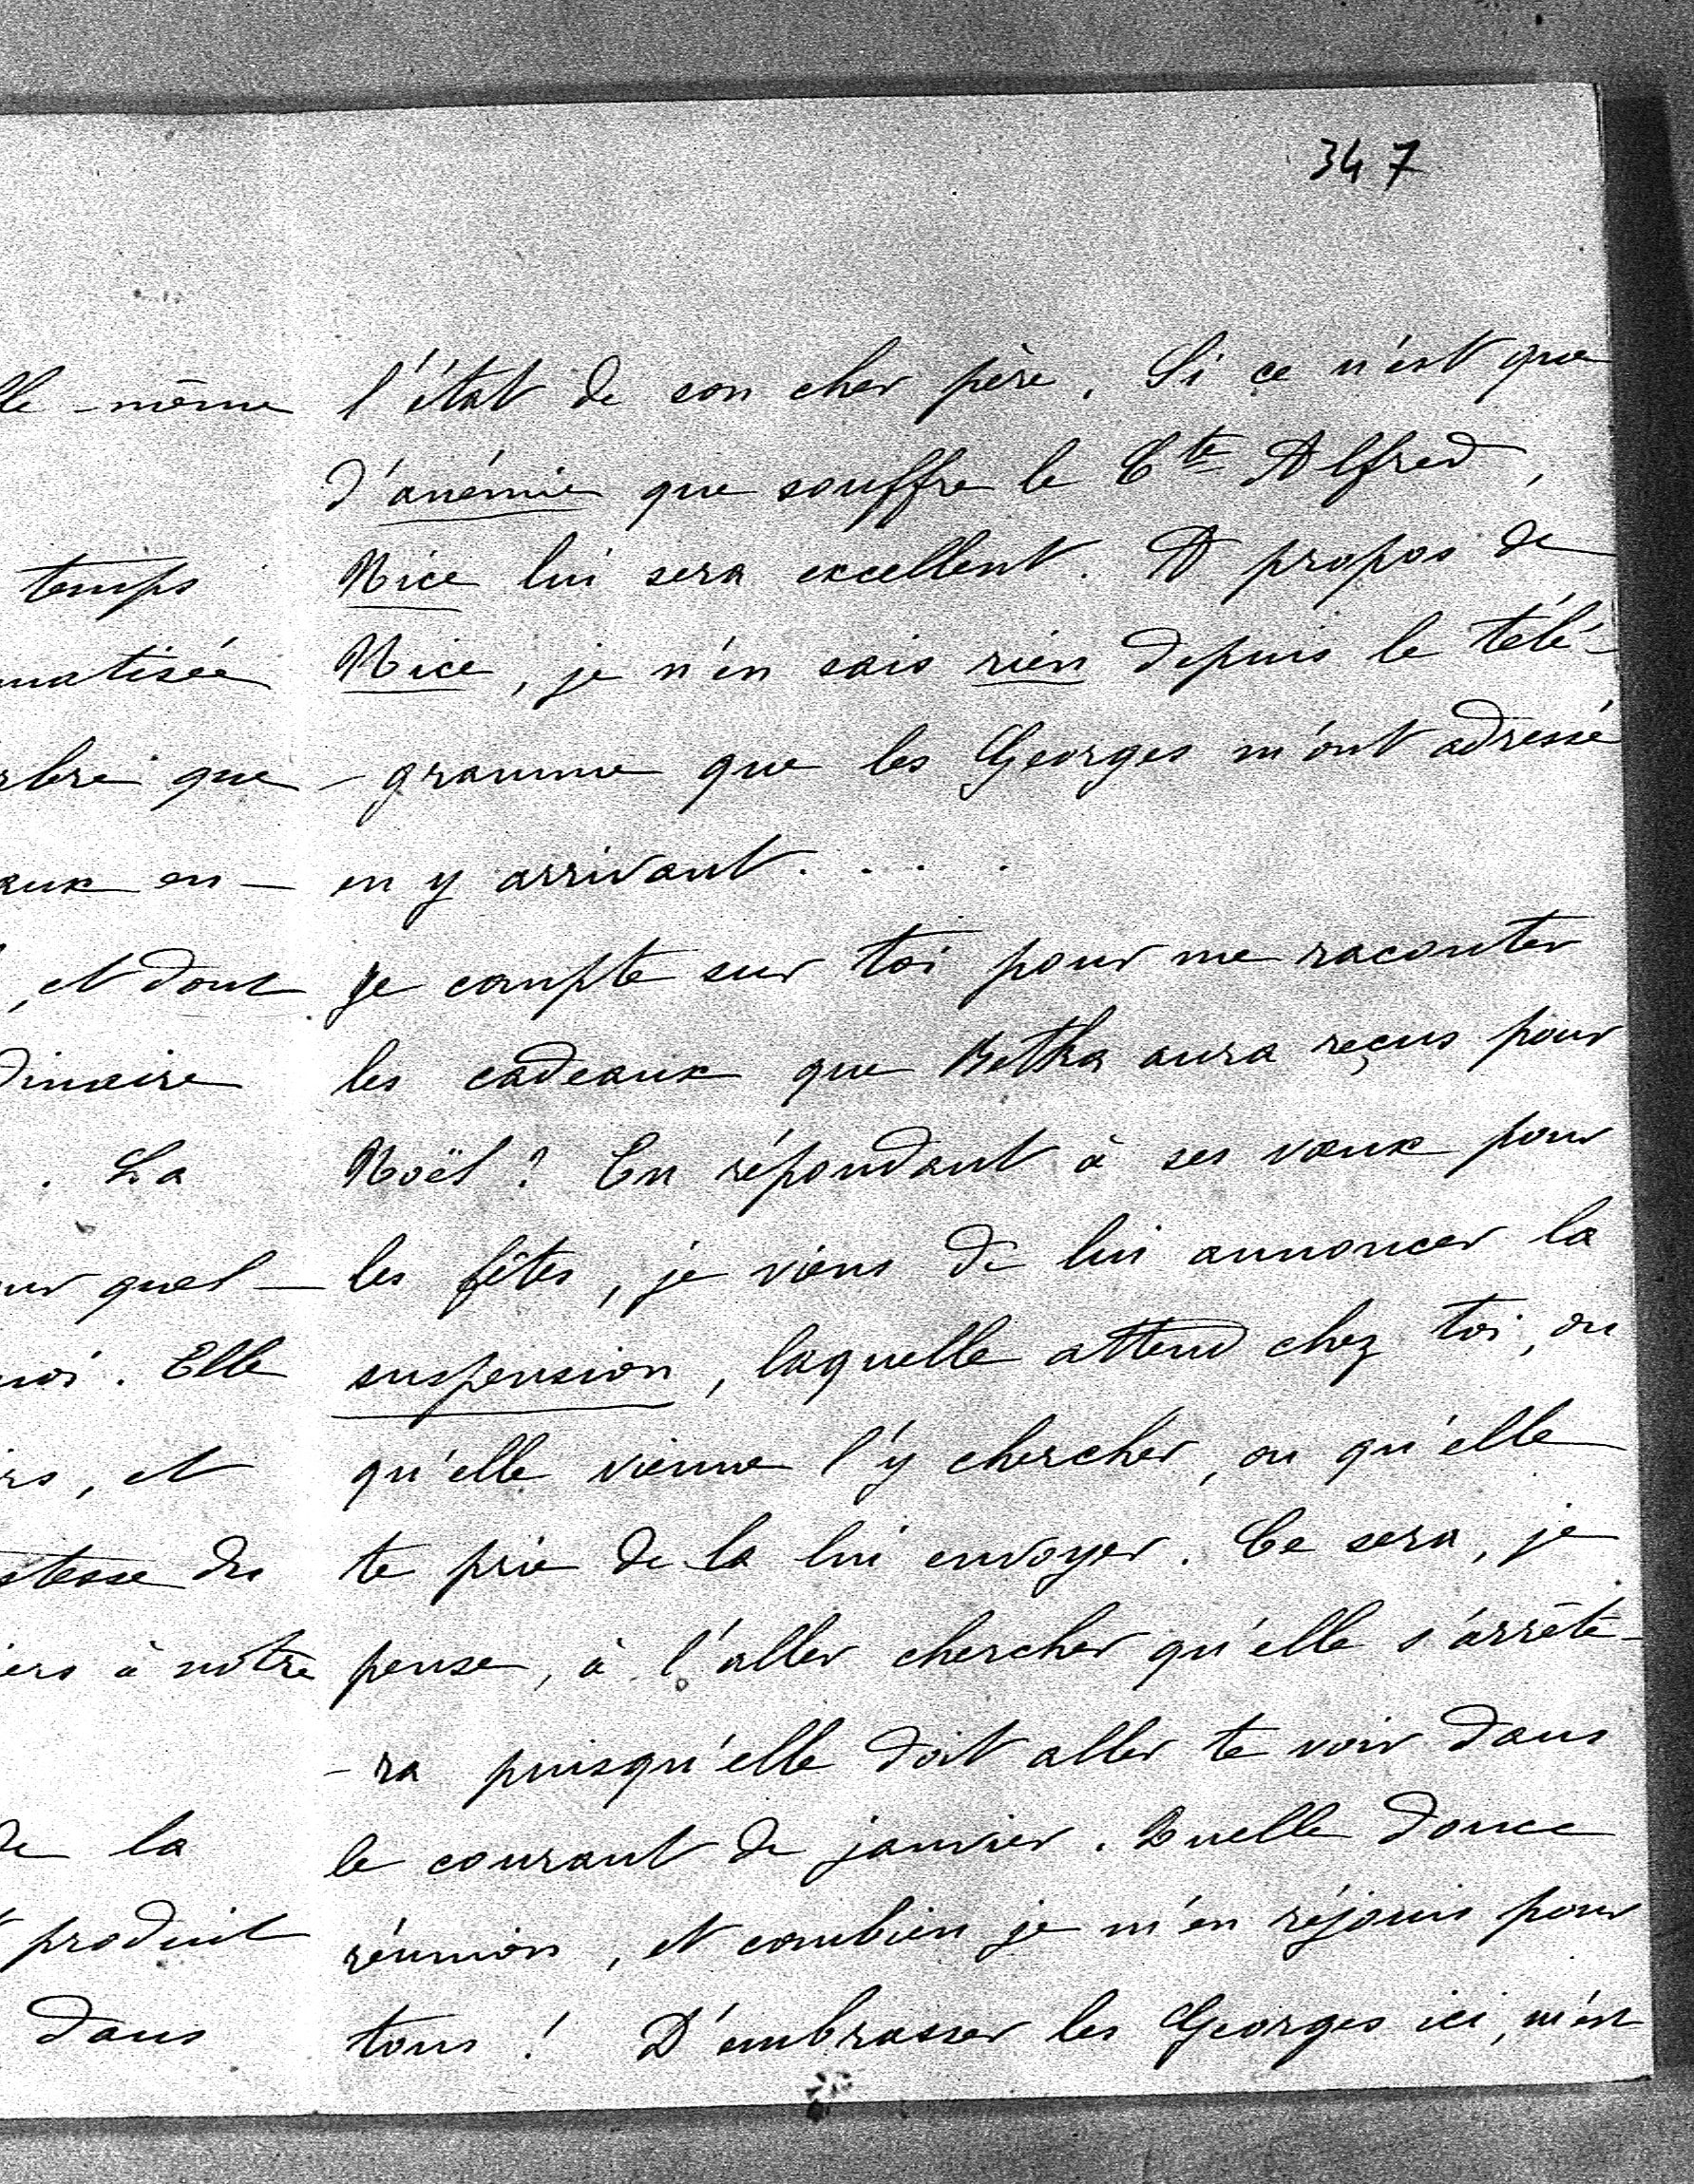 347
lle-même
temps
matisée
rbre que
aux en-
, et dont
dinaire
. La
ur quel-
moi. Elle
rs, et
stesse du
iers à notre
de la
produit
dans
l'état de son cher père. Si ce n'est que
d'anémie que souffre le Cte Alfred,
Nice lui sera excellent. A propos de
Nice, je n'en sais rien depuis le télé-
-gramme que les Georges m'ont adressé
en y arrivant....
Je compte sur toi pour me raconter
les cadeaux que Betka aura reçus pour
Noël? En répondant à ses vœux pour
les fêtes, je viens de lui annoncer la
suspension, laquelle attend chez toi, ou
qu'elle vienne l'y chercher, ou qu'elle
te prie de la lui envoyer. Ce sera, je
pense, à l'aller chercher qu'elle s'arrête-
-ra puisqu'elle doit aller te voir dans
le courant de janvier. Quelle douce
réunion, et combien je m'en réjouis pour
tous! D'embrasser les Georges ici, m'est